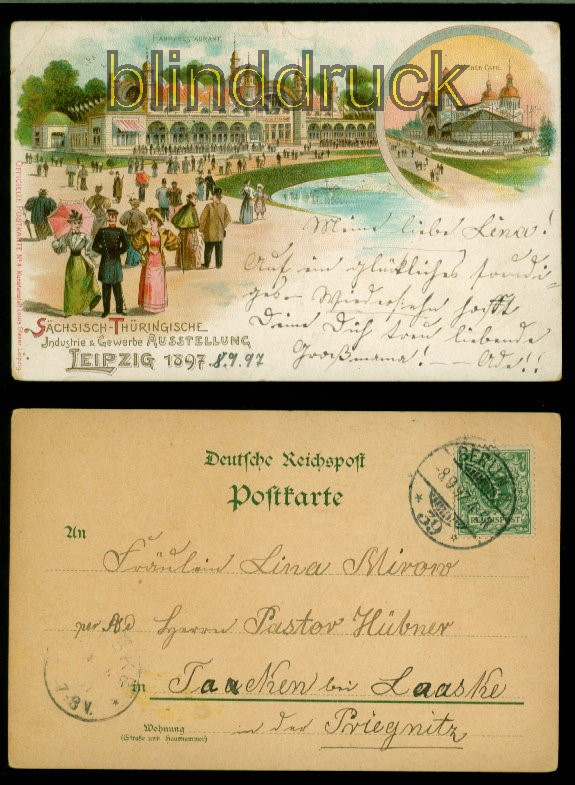 HAUPTRESTAURANT.
blinddruck
Meine liebe Lina!
Auf ein glückliches freudi-
ges Wiedersehn hofft
Deine Dich treu liebende
Großmama! — Ade!!
OFFICIELLE POSTKARTE No 4
SÄCHSISCH-THÜRINGISCHE
Industrie & Gewerbe AUSSTELLUNG
LEIPZIG 1897. 8.9.97
Deutsche Reichspost
Postkarte
BERLIN
8.9.97
39
REICHSPOST
An
Fräulein Lina Mirow
per Ad Herrn Pastor Hübner
in Taacken bei Laaske
Wohnung in der Priegnitz
(Straße und Hausnummer)
7-8V.